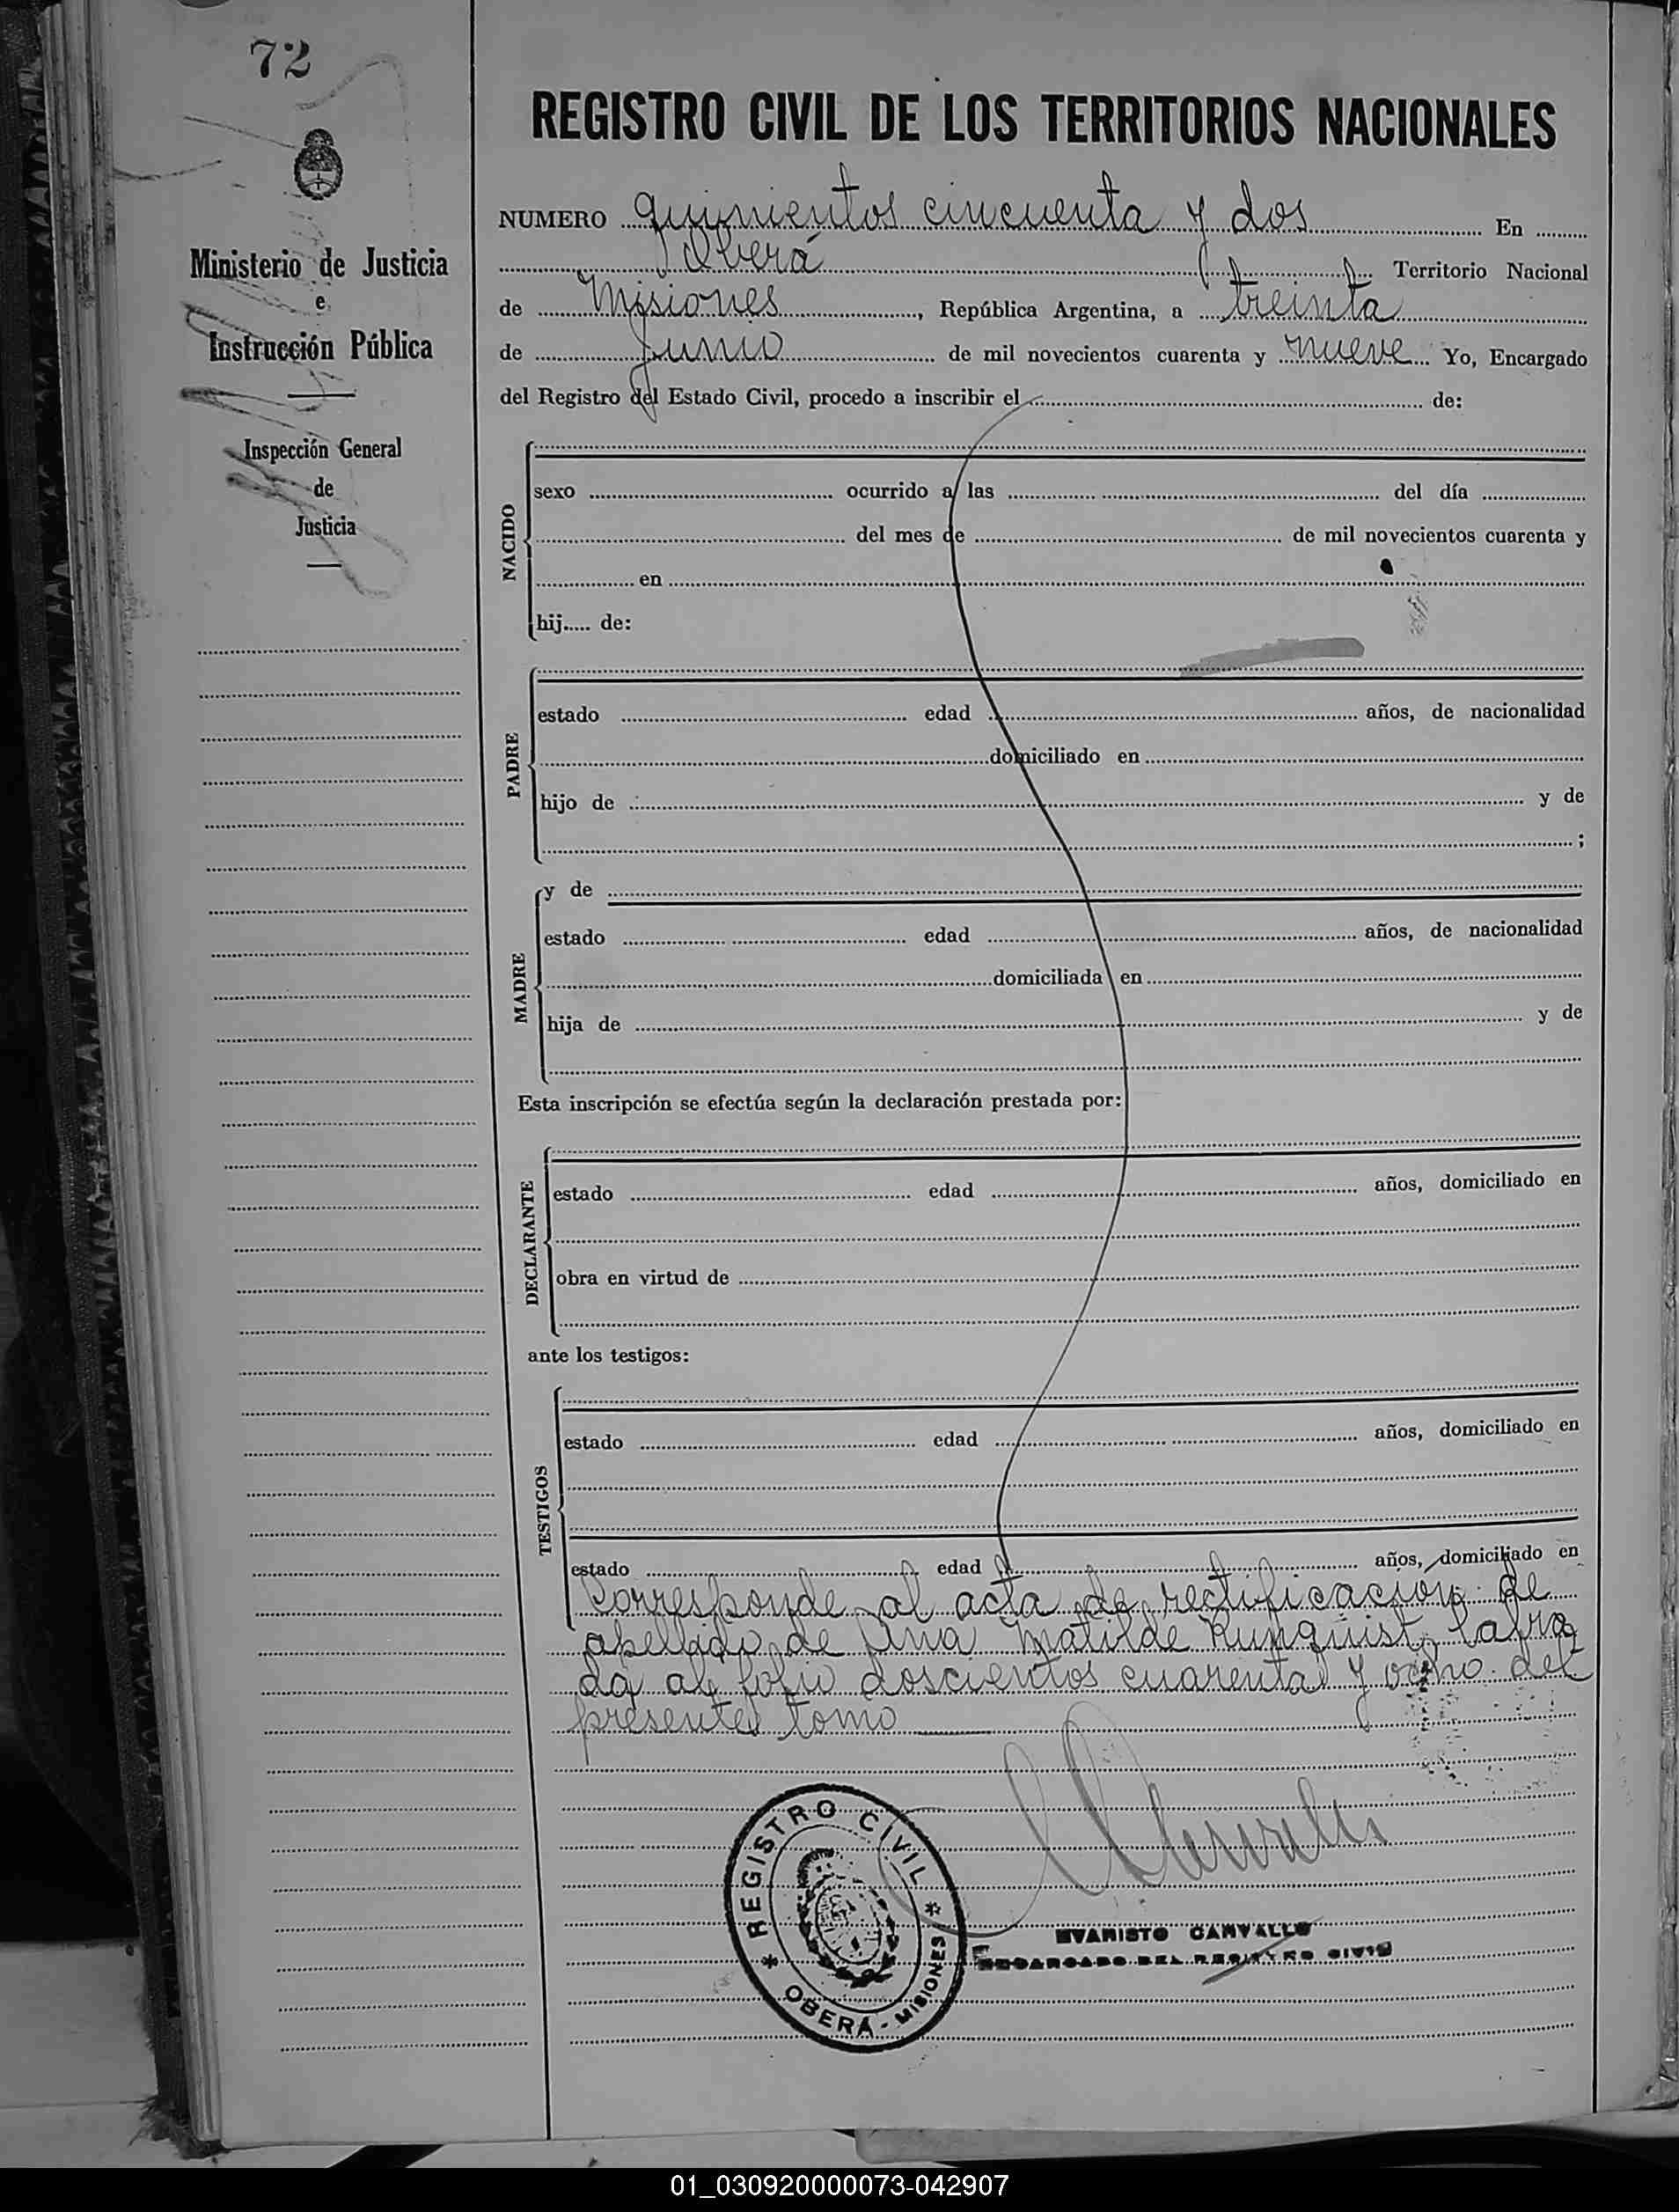 72
REGISTRO CIVIL DE LOS TERRITORIOS NACIONALES
NUMERO quinientos cincuenta y dos En
Oberá Territorio Nacional
de Misiones, República Argentina, a treinta
de Junio de mil novecientos cuarenta y nueve Yo, Encargado
del Registro del Estado Civil, procedo a inscribir el de:
Ministerio de Justicia
e
Instrucción Pública
Inspección General
de
Justicia
NACIDO
sexo ocurrido a las del día
del mes de de mil novecientos cuarenta y
en
hij..... de:
PADRE
estado edad años, de nacionalidad
domiciliado en
hijo de y de
;
MADRE
y de
estado edad años, de nacionalidad
domiciliada en
hija de y de
Esta inscripción se efectúa según la declaración prestada por:
DECLARANTE
estado edad años, domiciliado en
obra en virtud de
ante los testigos:
TESTIGOS
estado edad años, domiciliado en
estado edad años, domiciliado en
Corresponde al acta de rectificación de
apellido de Matilde Runquist, labra
da al folio doscientos cuarenta y ocho del
presente tomo
REGISTRO CIVIL
OBERÁ - MISIONES
EVARISTO CARVALLO
ENCARGADO DEL REGISTRO CIVIL
01_030920000073-042907